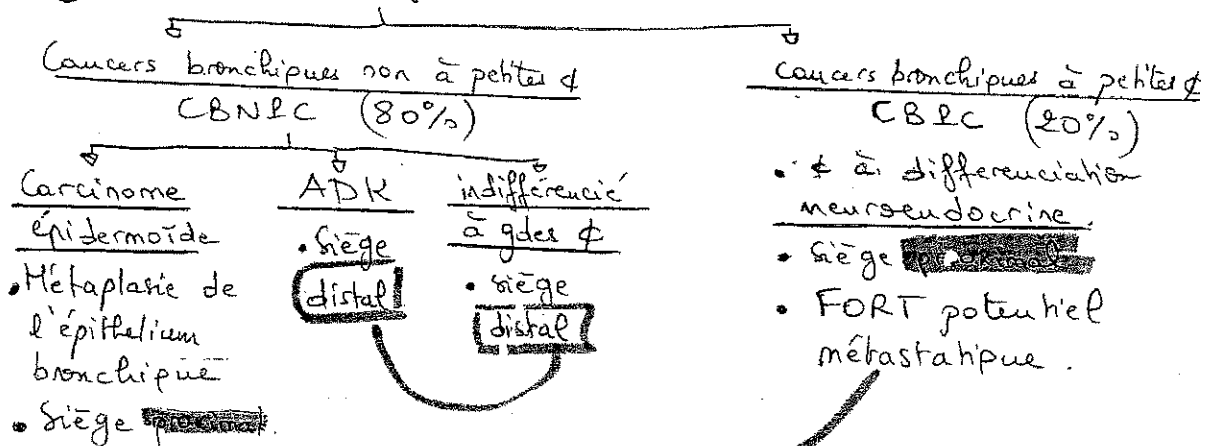 Cancers bronchiques non à petites ¢
CBNPC (80%)
Carcinome
épidermoïde
• Métaplasie de
l'épithelium
bronchique
• Siège proximal.
ADK
• Siège
distal
indifférencié
à gdes ¢
• siège
distal
Cancers bronchiques à petites ¢
CBPC (20%)
• ¢ à differenciation
neuroendocrine.
• Siège proximal
• FORT potentiel
métastatique.